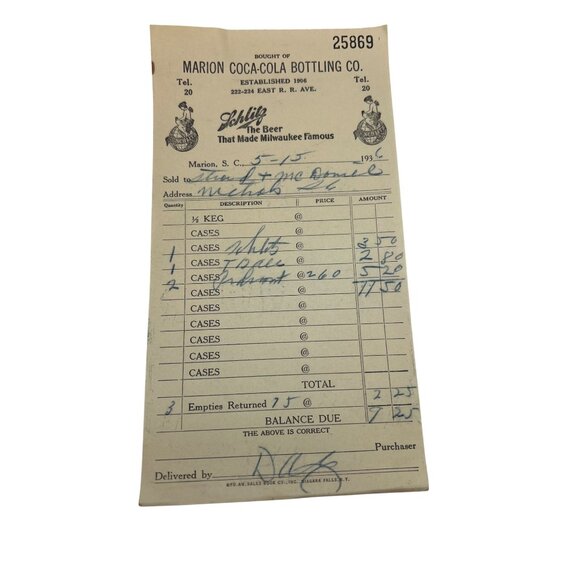 25869
BOUGHT OF
MARION COCA-COLA BOTTLING CO.
Tel. 20 ESTABLISHED 1906 Tel. 20
222-224 EAST R. R. AVE.
Schlitz
The Beer
That Made Milwaukee Famous
Marion, S. C., 5-15 1936
Sold to & McDaniel
Address Nichols SC
Quantity DESCRIPTION PRICE AMOUNT
½ KEG @
CASES @
1 CASES Schlitz @ 3 50
1 CASES @ 2 80
2 CASES @ 2 60 5 20
CASES @ 11 50
CASES @
CASES @
CASES @
CASES @
CASES @
TOTAL
3 Empties Returned 75 @ 2 25
BALANCE DUE 9 25
THE ABOVE IS CORRECT
Purchaser
Delivered by
MFD. AM. SALES BOOK CO., INC., NIAGARA FALLS, N.Y.